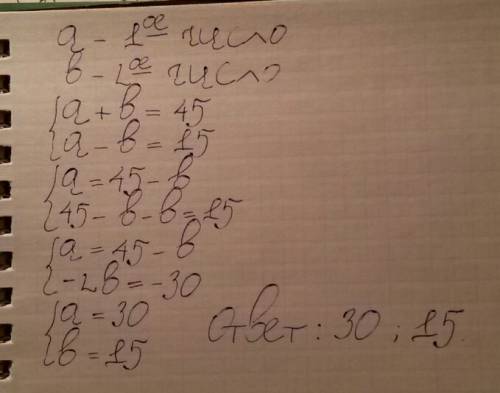 a - 1ᵃᵉ число
b - 2ᵃᵉ число
{a + b = 45
{a - b = 15
{a = 45 - b
{45 - b - b = 15
{a = 45 - b
{-2b = -30
{a = 30
{b = 15
Ответ: 30; 15.